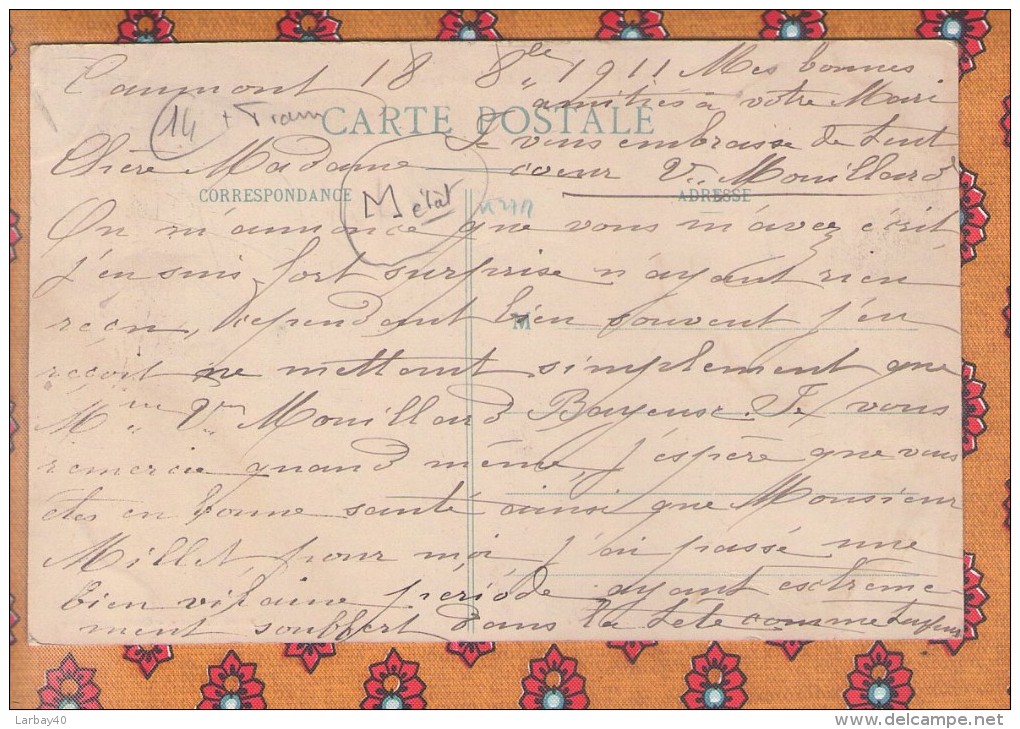 Caumont 18 8bre 1911 Mes bonnes
amitiés à votre Mari
14 + Tram
CARTE POSTALE
Je vous embrasse de tout
Chère Madame
coeur Vve Mouillard
CORRESPONDANCE
ADRESSE
M état
On m'annonce que vous m'avez écrit
j'en suis fort surprise n'ayant rien
reçu, cependant bien souvent j'en
M
reçoit ne mettant simplement que
Mme Vve Mouillard Bayeux. Je vous
remercie quand même, j'espère que vous
êtes en bonne santé ainsi que Monsieur
Millet, pour moi, j'ai passé une
bien vilaine période ayant extrème-
ment souffert dans la tête comme
Larbay40
www.delcampe.net